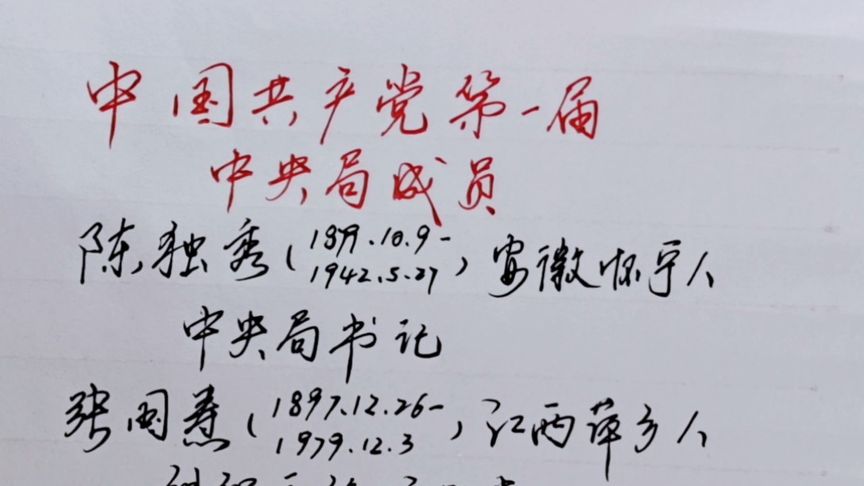 中国共产党第一届
中央局成员
陈独秀(1879.10.9-1942.5.27)安徽怀宁人
中央局书记
张国焘(1897.12.26-1979.12.3)江西萍乡人